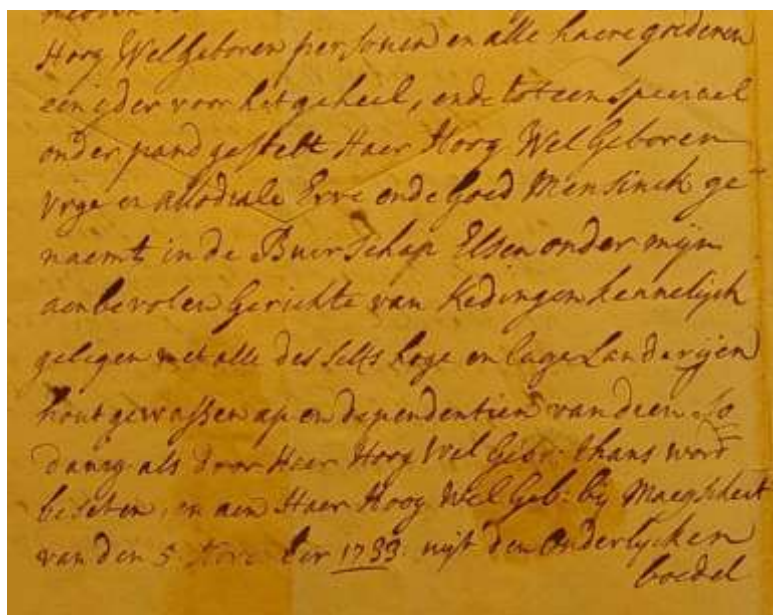 Hoog Wel Geboren personen en alle haere goederen
een ider voor het geheel, ende tot een speciael
onder pand gestelt Haer Hoog Wel Geboren
vrije en allodiale Erve ende Goed Mensinck ge-
naemt in de Buerschap Elsen onder mijn
aenbevolen Gerichte van Kedingen kennelijck
gelegen met alle des selfs hoge en lage Landerijen
hout gewassen ap en dependentien van dien So
danig als door Haer Hoog Wel Gebr: thans word
beseten, en aen Haer Hoog Wel Geb: bij Maegscheit
van den 5 November 1733: uijt den Ouderlijcken
boedel